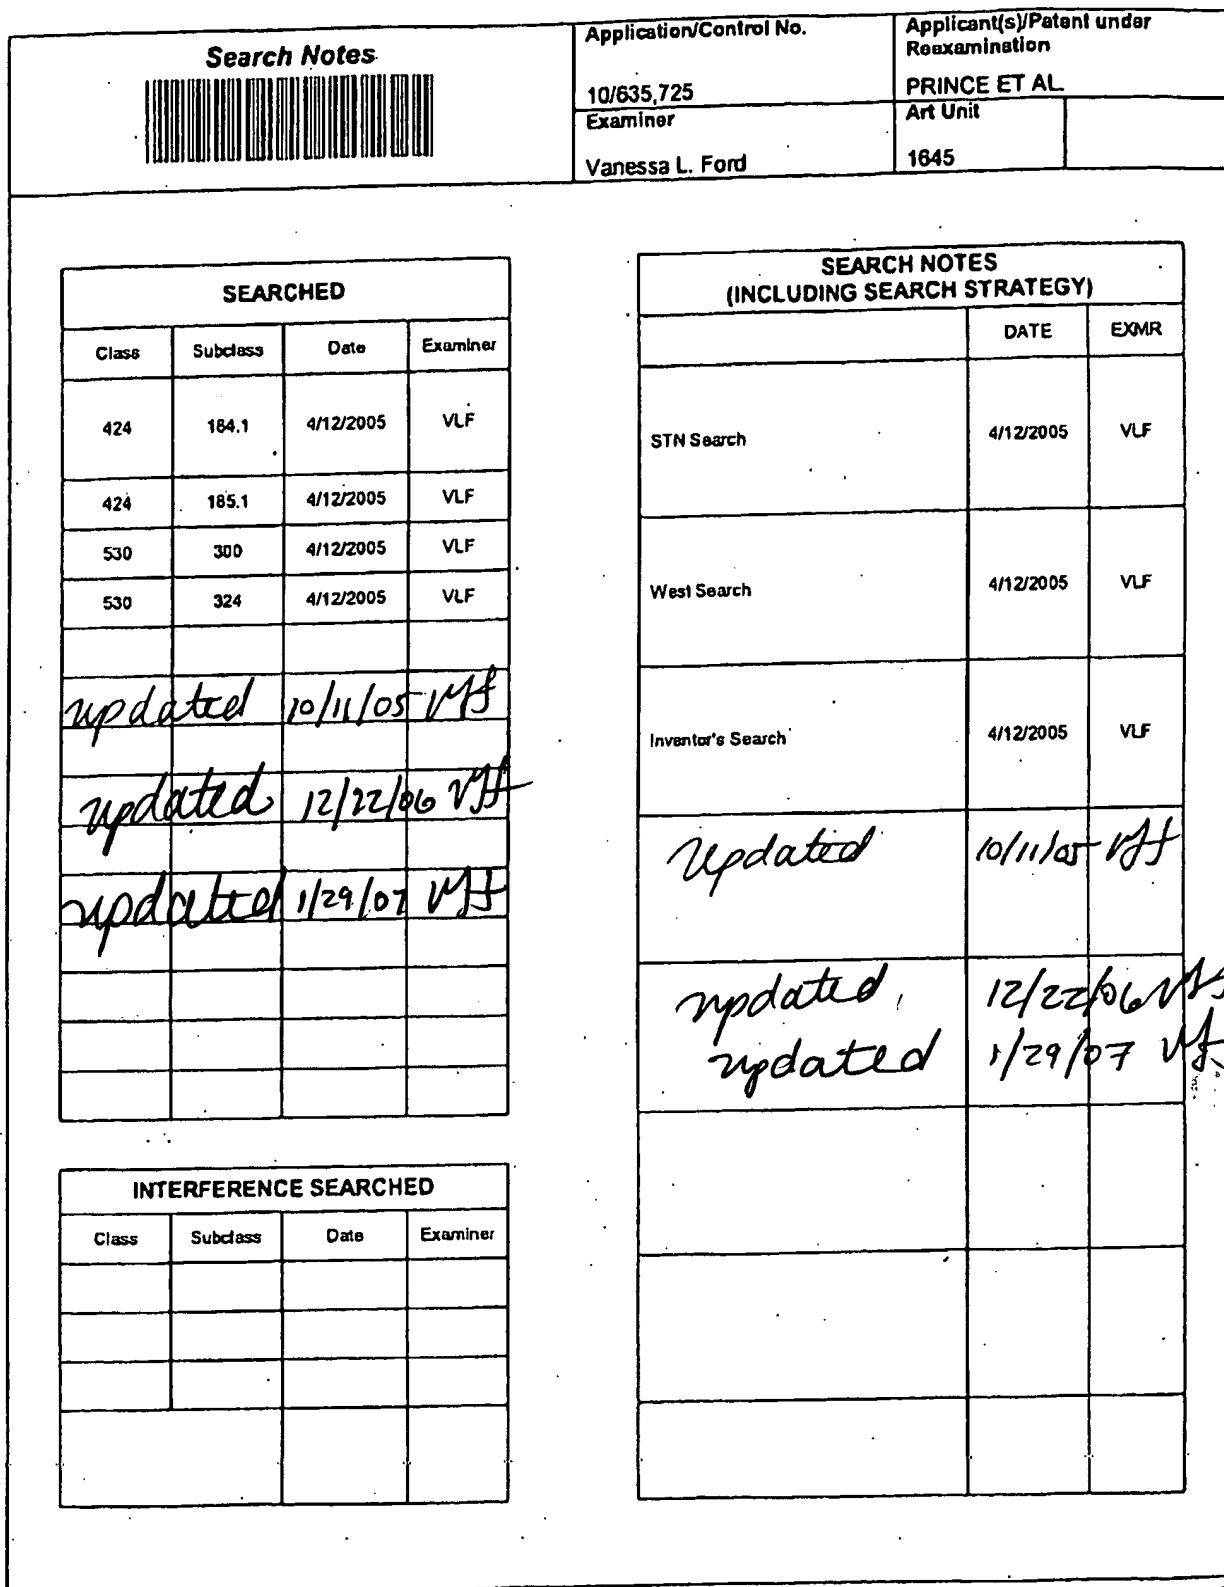 Search Notes
Application/Control No.
10/635,725
Applicant(s)/Patent under
Reexamination
PRINCE ET AL.
Examiner
Vanessa L. Ford
Art Unit
1645
SEARCHED
Class Subclass Date Examiner
424 184.1 4/12/2005 VLF
424 185.1 4/12/2005 VLF
530 300 4/12/2005 VLF
530 324 4/12/2005 VLF
updated 10/11/05 VLF
updated 12/22/06 VLF
updated 1/29/07 VLF
INTERFERENCE SEARCHED
Class Subclass Date Examiner
SEARCH NOTES
(INCLUDING SEARCH STRATEGY)
DATE EXMR
STN Search 4/12/2005 VLF
West Search 4/12/2005 VLF
Inventor's Search 4/12/2005 VLF
Updated 10/11/05 VLF
updated 12/22/06 VLF
updated 1/29/07 VLF